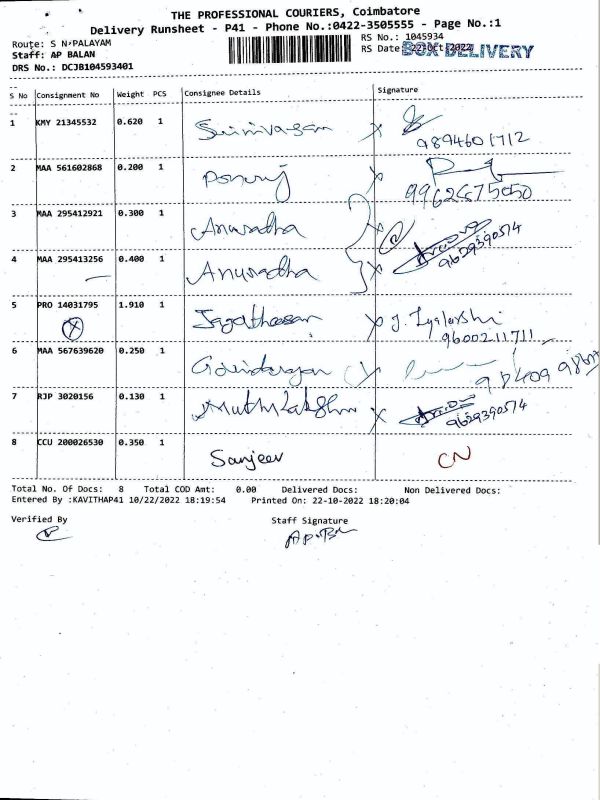 THE PROFESSIONAL COURIERS, Coimbatore
Delivery Runsheet - P41 - Phone No.:0422-3505555 - Page No.:1
Route: S N PALAYAM
RS No.: 1045934
Staff: AP BALAN
RS Date: 22-Oct-2022
BOX DELIVERY
DRS No.: DCJB104593401
S No Consignment No Weight PCS Consignee Details Signature
1 KMY 21345532 0.620 1 Srinivasan x
9894601712
2 MAA 561602868 0.200 1 Ponraj x
9962675050
3 MAA 295412921 0.300 1 Anuradha x
9629390574
4 MAA 295413256 0.400 1 Anuradha x
5 PRO 14031795 1.910 1 Jagatheesan x
9600211711
6 MAA 567639620 0.250 1 Govindarajan x
7 RJP 3020156 0.130 1 Muthulakshmi x
9629390574
8 CCU 200026530 0.350 1 Sanjeev CN
Total No. Of Docs: 8 Total COD Amt: 0.00 Delivered Docs: Non Delivered Docs:
Entered By :KAVITHAP41 10/22/2022 18:19:54 Printed On: 22-10-2022 18:20:04
Verified By Staff Signature